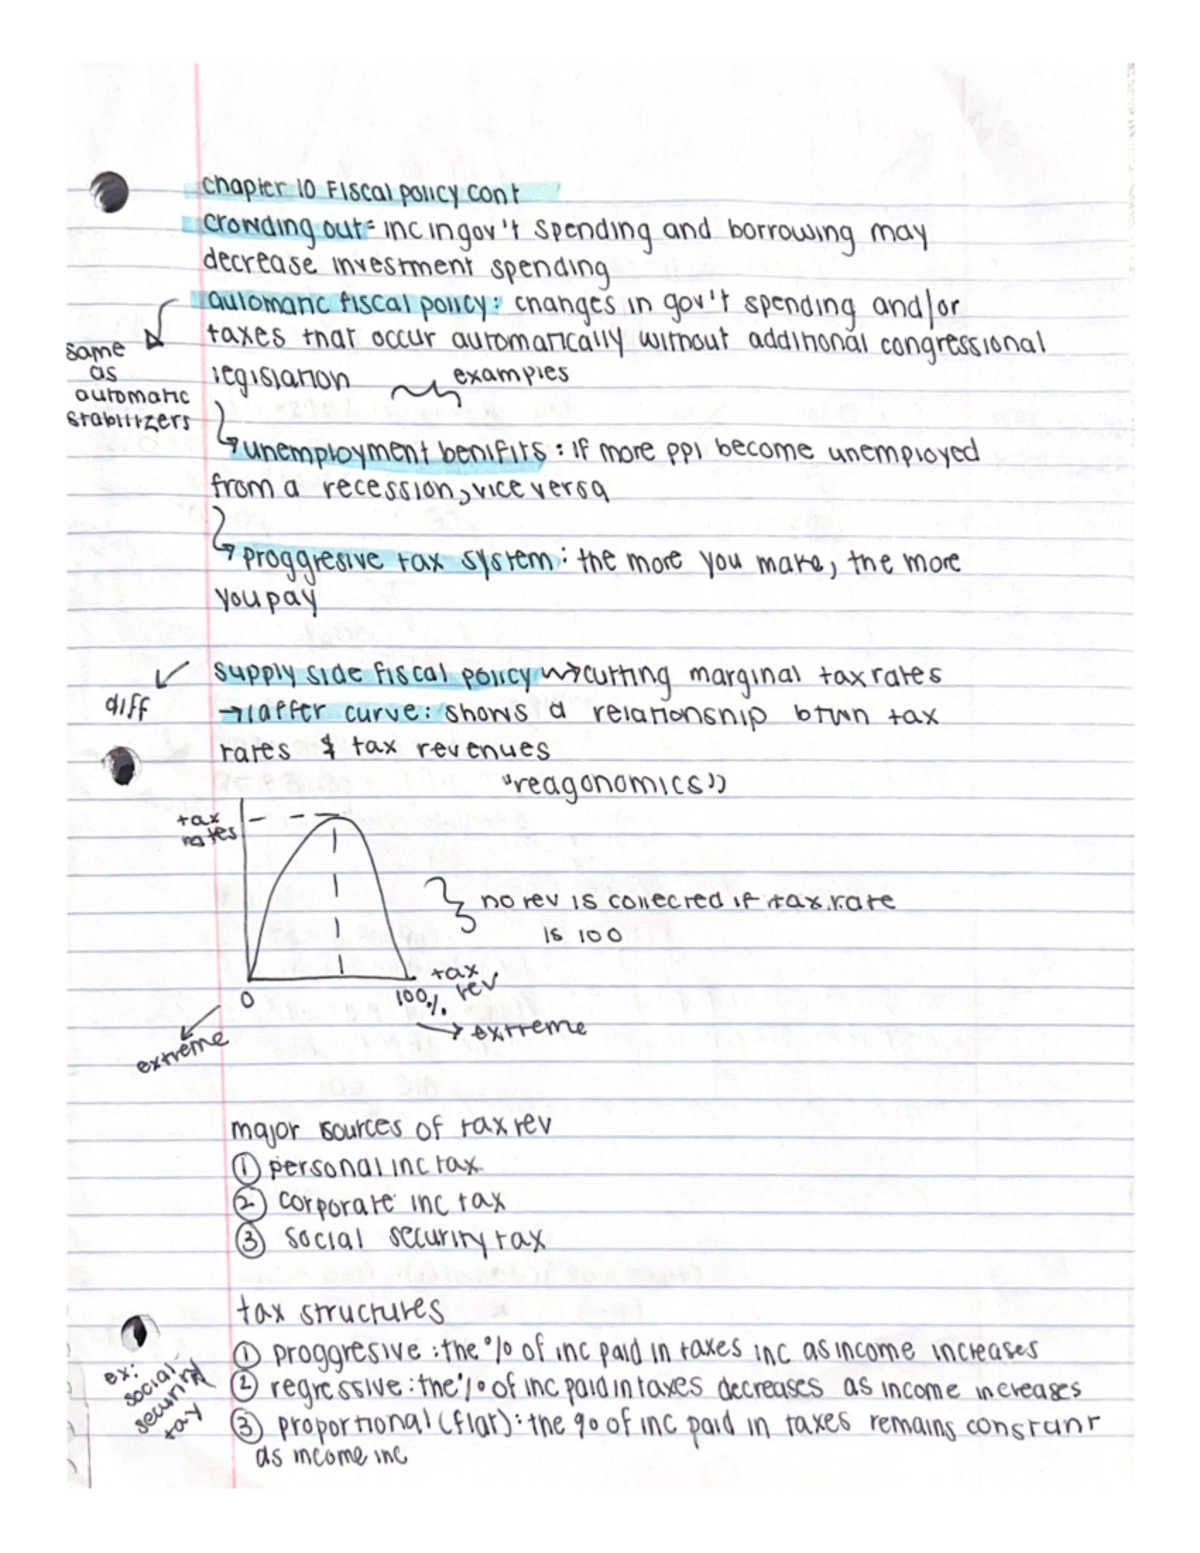 chapter 10 Fiscal policy cont
crowding out= inc in gov't spending and borrowing may
decrease investment spending
automatic fiscal policy: changes in gov't spending and/or
taxes that occur automatically without additional congressional
legislation examples
same
as
automatic
stabilizers
unemployment benifits: if more ppl become unemployed
from a recession, vice versa
proggresive tax system: the more you make, the more
you pay
supply side fiscal policy → cutting marginal tax rates
diff
→ laffer curve: shows a relationship btwn tax
rates & tax revenues
"reagonomics"
tax
rates
no rev is collected if tax rate
is 100
tax
rev
0 100%
extreme
→ extreme
major sources of tax rev
① personal inc tax
② corporate inc tax
③ social security tax
tax structures
① proggresive: the % of inc paid in taxes inc as income increases
② regressive: the % of inc paid in taxes decreases as income increases
ex:
social
security
tax
③ proportional (flat): the % of inc paid in taxes remains constant
as income inc